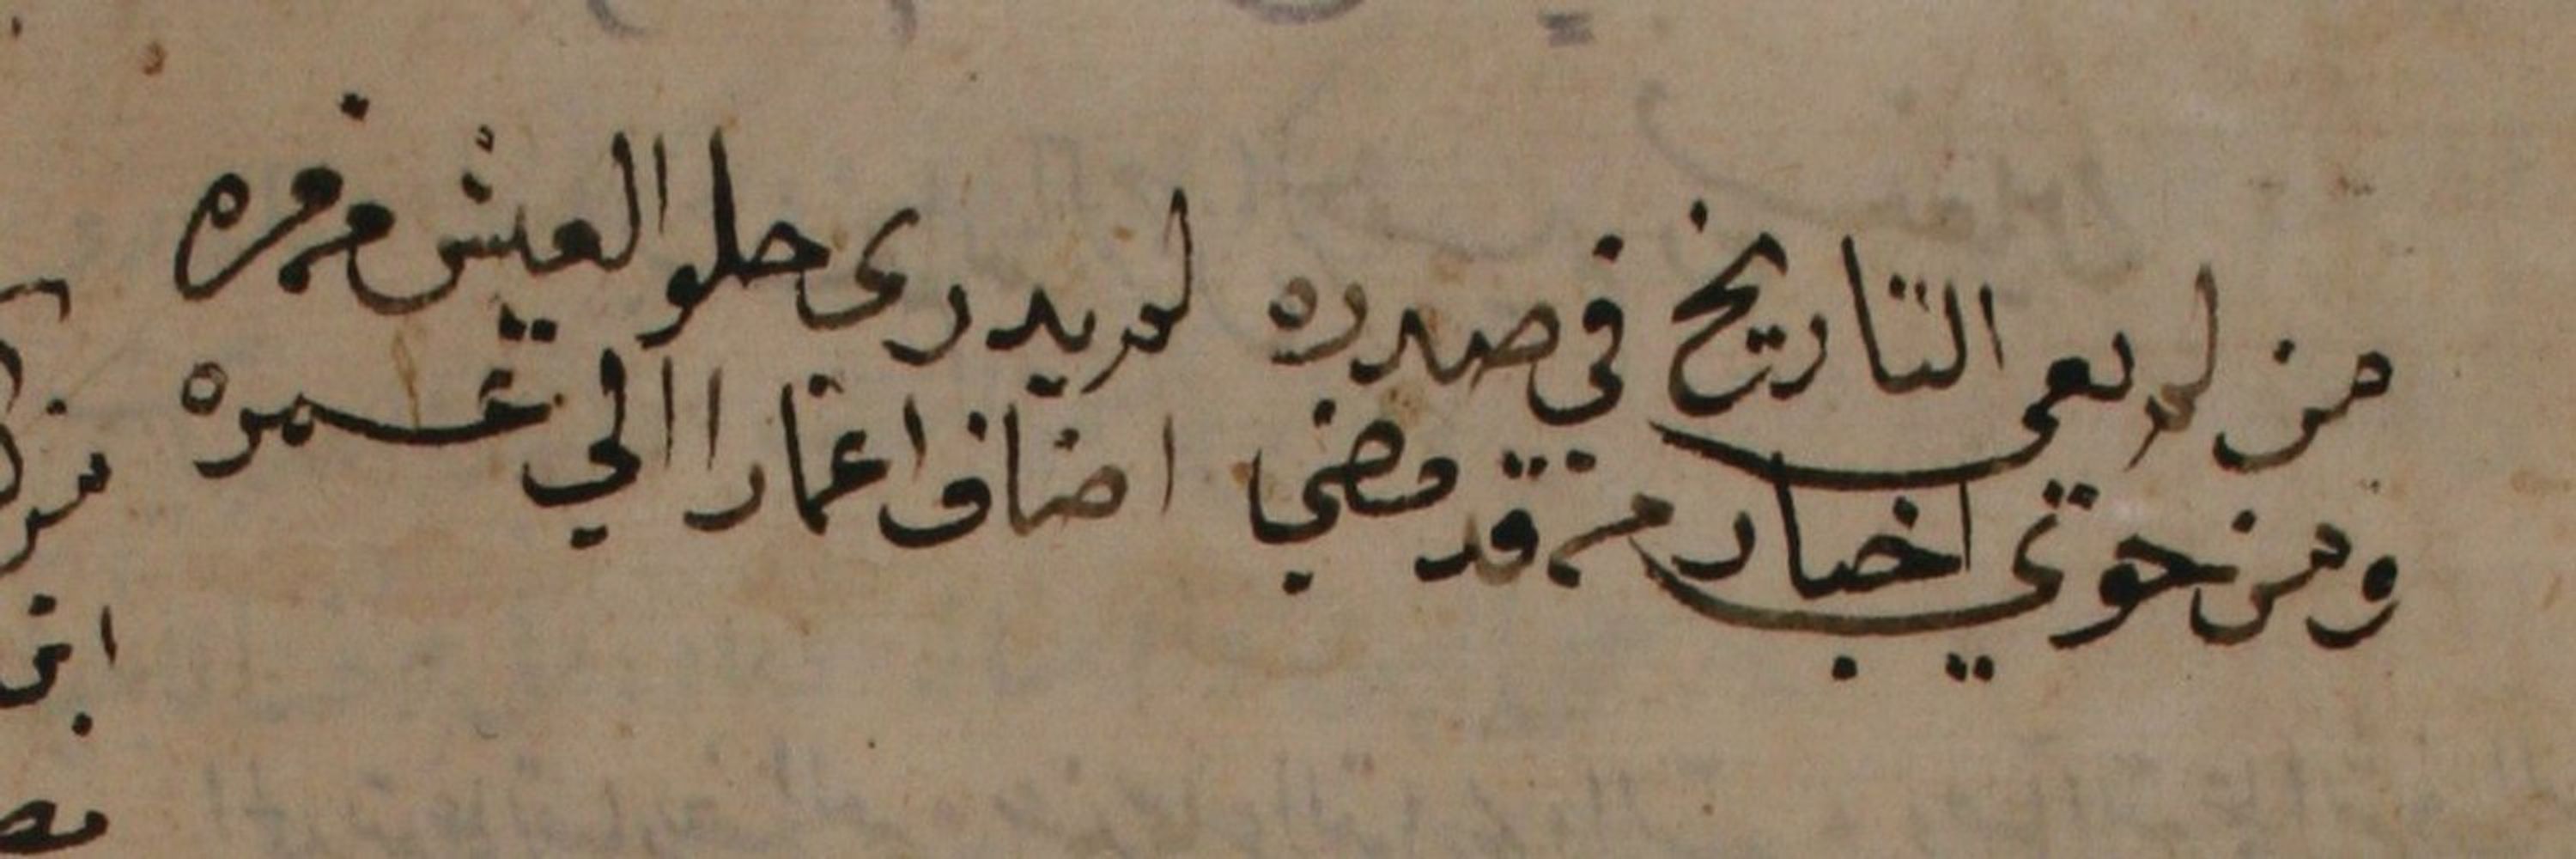 من لم يعي التاريخ في صدره لم يدري حلو العيش من مره
ومن حوي اخبار من قد مضي اضاف اعمارا الي عمره